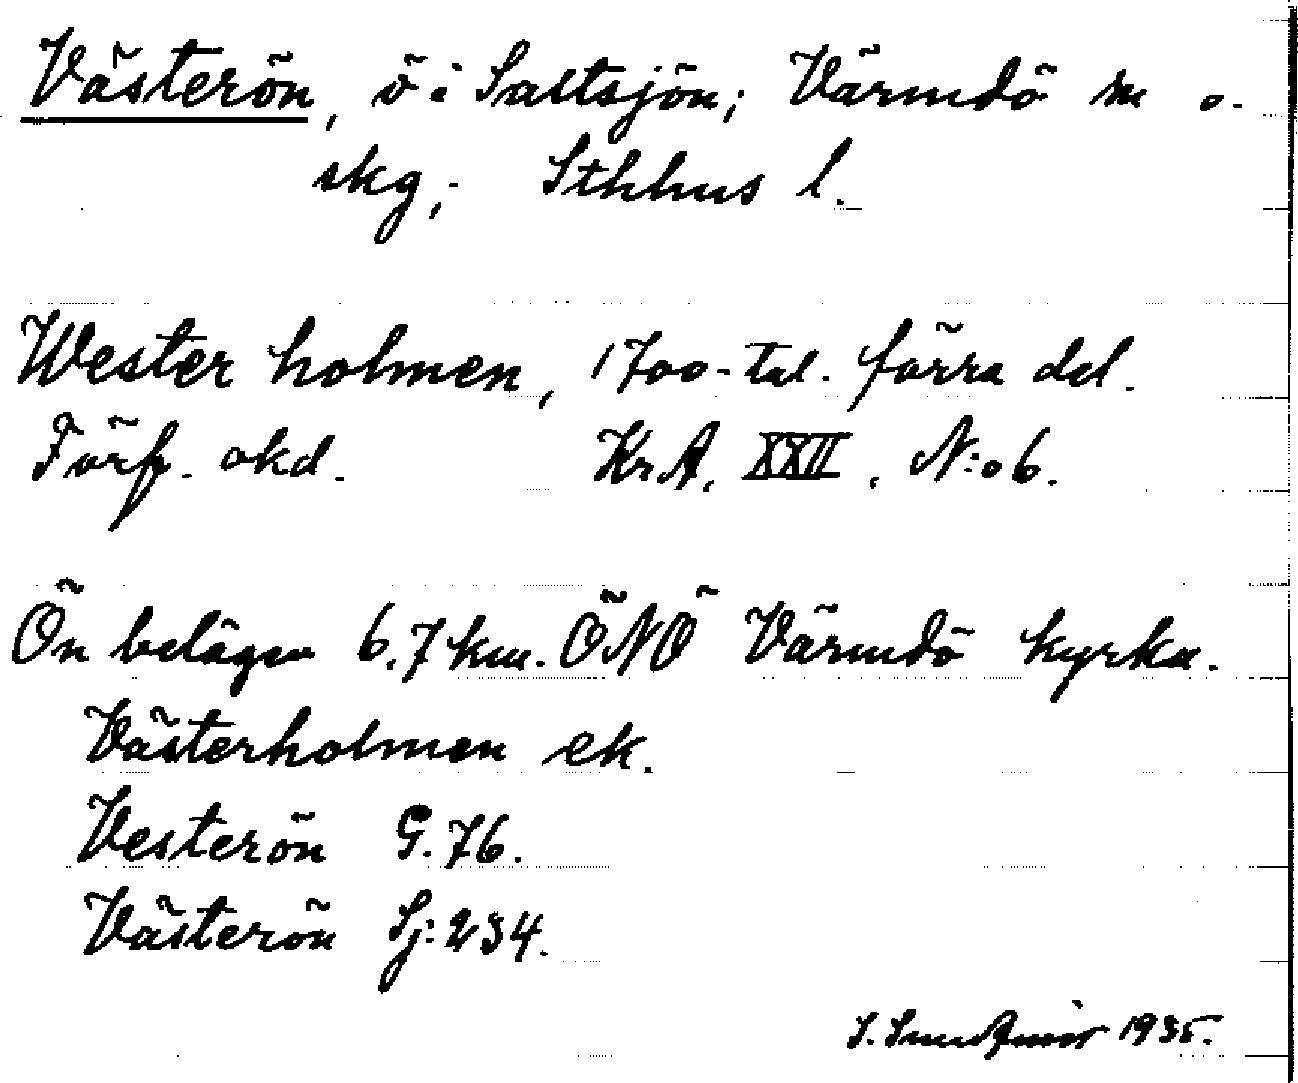 Västerön, ö i Saltsjön; Värmdö sn o.
skg; Sthhus l.
Westerholmen, 1700-tal. förra del.
Förf. okd. KrA. XXII, N:o 6.
Ön belägen 6.7 km. ÖNÖ Värmdö kyrka.
Västerholmen ek.
Vesterön G. 76.
Västerön Sj: 234.
1935.